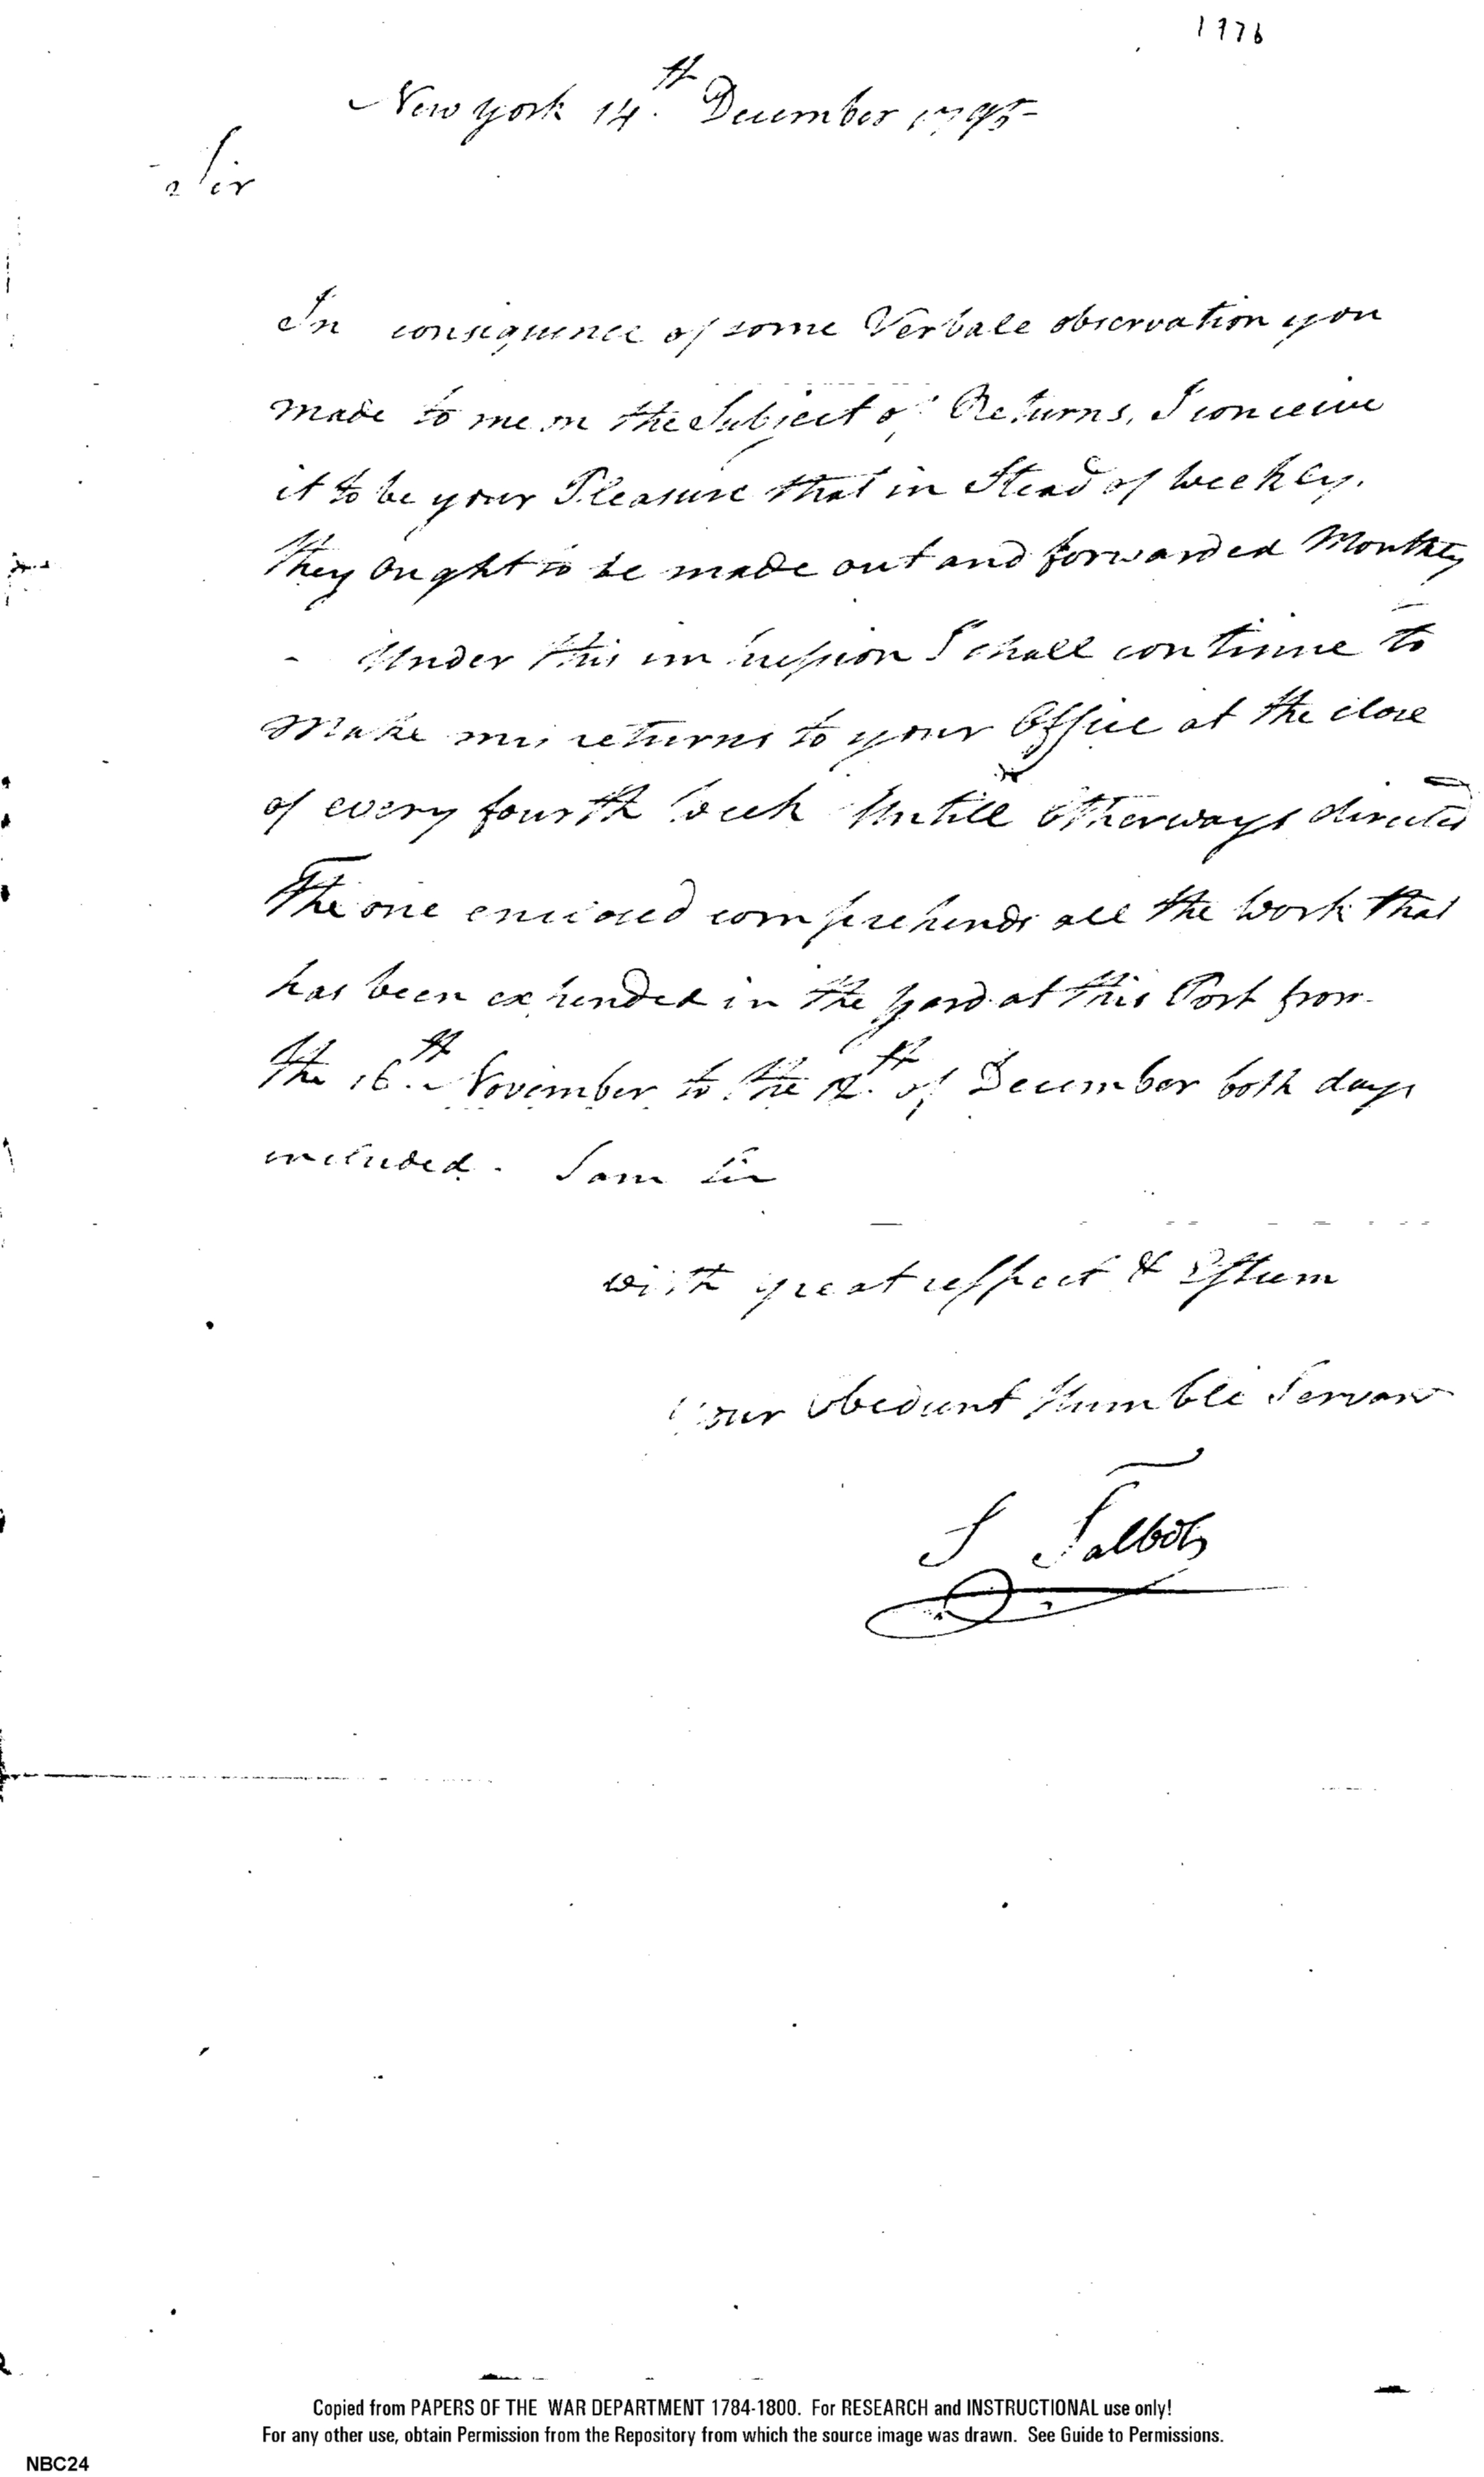 1776
New york 14.th December 1795
Sir
In consequence of some Verbale observation you
made to me on the Subject of Returns, I conceive
it to be your Pleasure that in Stead of weekly.
they ought to be made out and forwarded Monthly
- Under this impression I shall continue to
make my returns to your Office at the close
of every fourth week Untill otherways directed
The one enclosed comprehends all the work that
has been expended in the yard at this Port from
the 16.th November to the 12.th of December both days
included. I am Sir
with great respect & Esteem
Your obedient Humble Servant
S Talbot
Copied from PAPERS OF THE WAR DEPARTMENT 1784-1800. For RESEARCH and INSTRUCTIONAL use only!
For any other use, obtain Permission from the Repository from which the source image was drawn. See Guide to Permissions.
NBC24